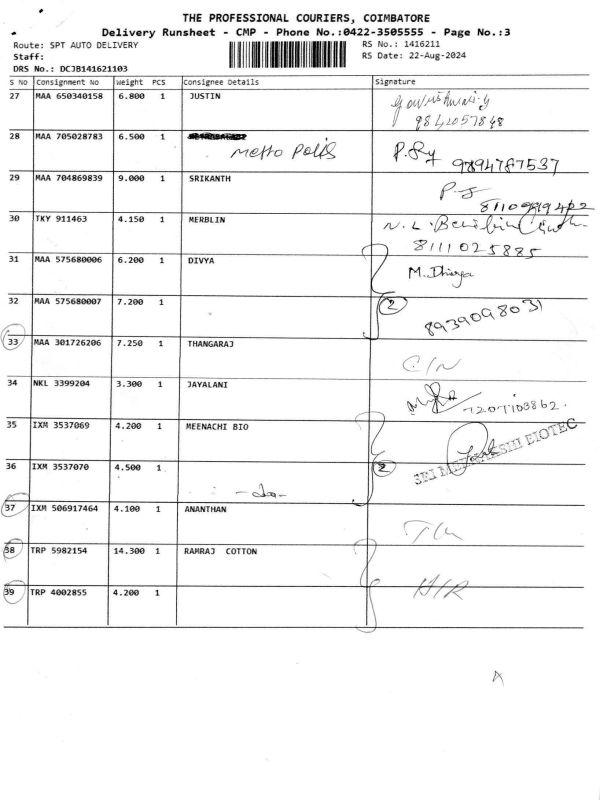 THE PROFESSIONAL COURIERS, COIMBATORE
Delivery Runsheet - CMP - Phone No.:0422-3505555 - Page No.:3
Route: SPT AUTO DELIVERY RS No.: 1416211
Staff: RS Date: 22-Aug-2024
DRS No.: DCJB141621103
S No Consignment No Weight PCS Consignee Details Signature
27 MAA 650340158 6.800 1 JUSTIN
9842057848
28 MAA 705028783 6.500 1
Metto Polis P.S 9894787537
29 MAA 704869839 9.000 1 SRIKANTH
30 TKY 911463 4.150 1 MERBLIN
8111025885
31 MAA 575680006 6.200 1 DIVYA M. Dhivya
32 MAA 575680007 7.200 1 2
8939098031
33 MAA 301726206 7.250 1 THANGARAJ C/N
34 NKL 3399204 3.300 1 JAYALANI
7207103862.
35 IXM 3537069 4.200 1 MEENACHI BIO
SRI MEENAKSHI BIOTEC
36 IXM 3537070 4.500 1 2
-do-
37 IXM 506917464 4.100 1 ANANTHAN
38 TRP 5982154 14.300 1 RAMRAJ COTTON
39 TRP 4002855 4.200 1 H/R